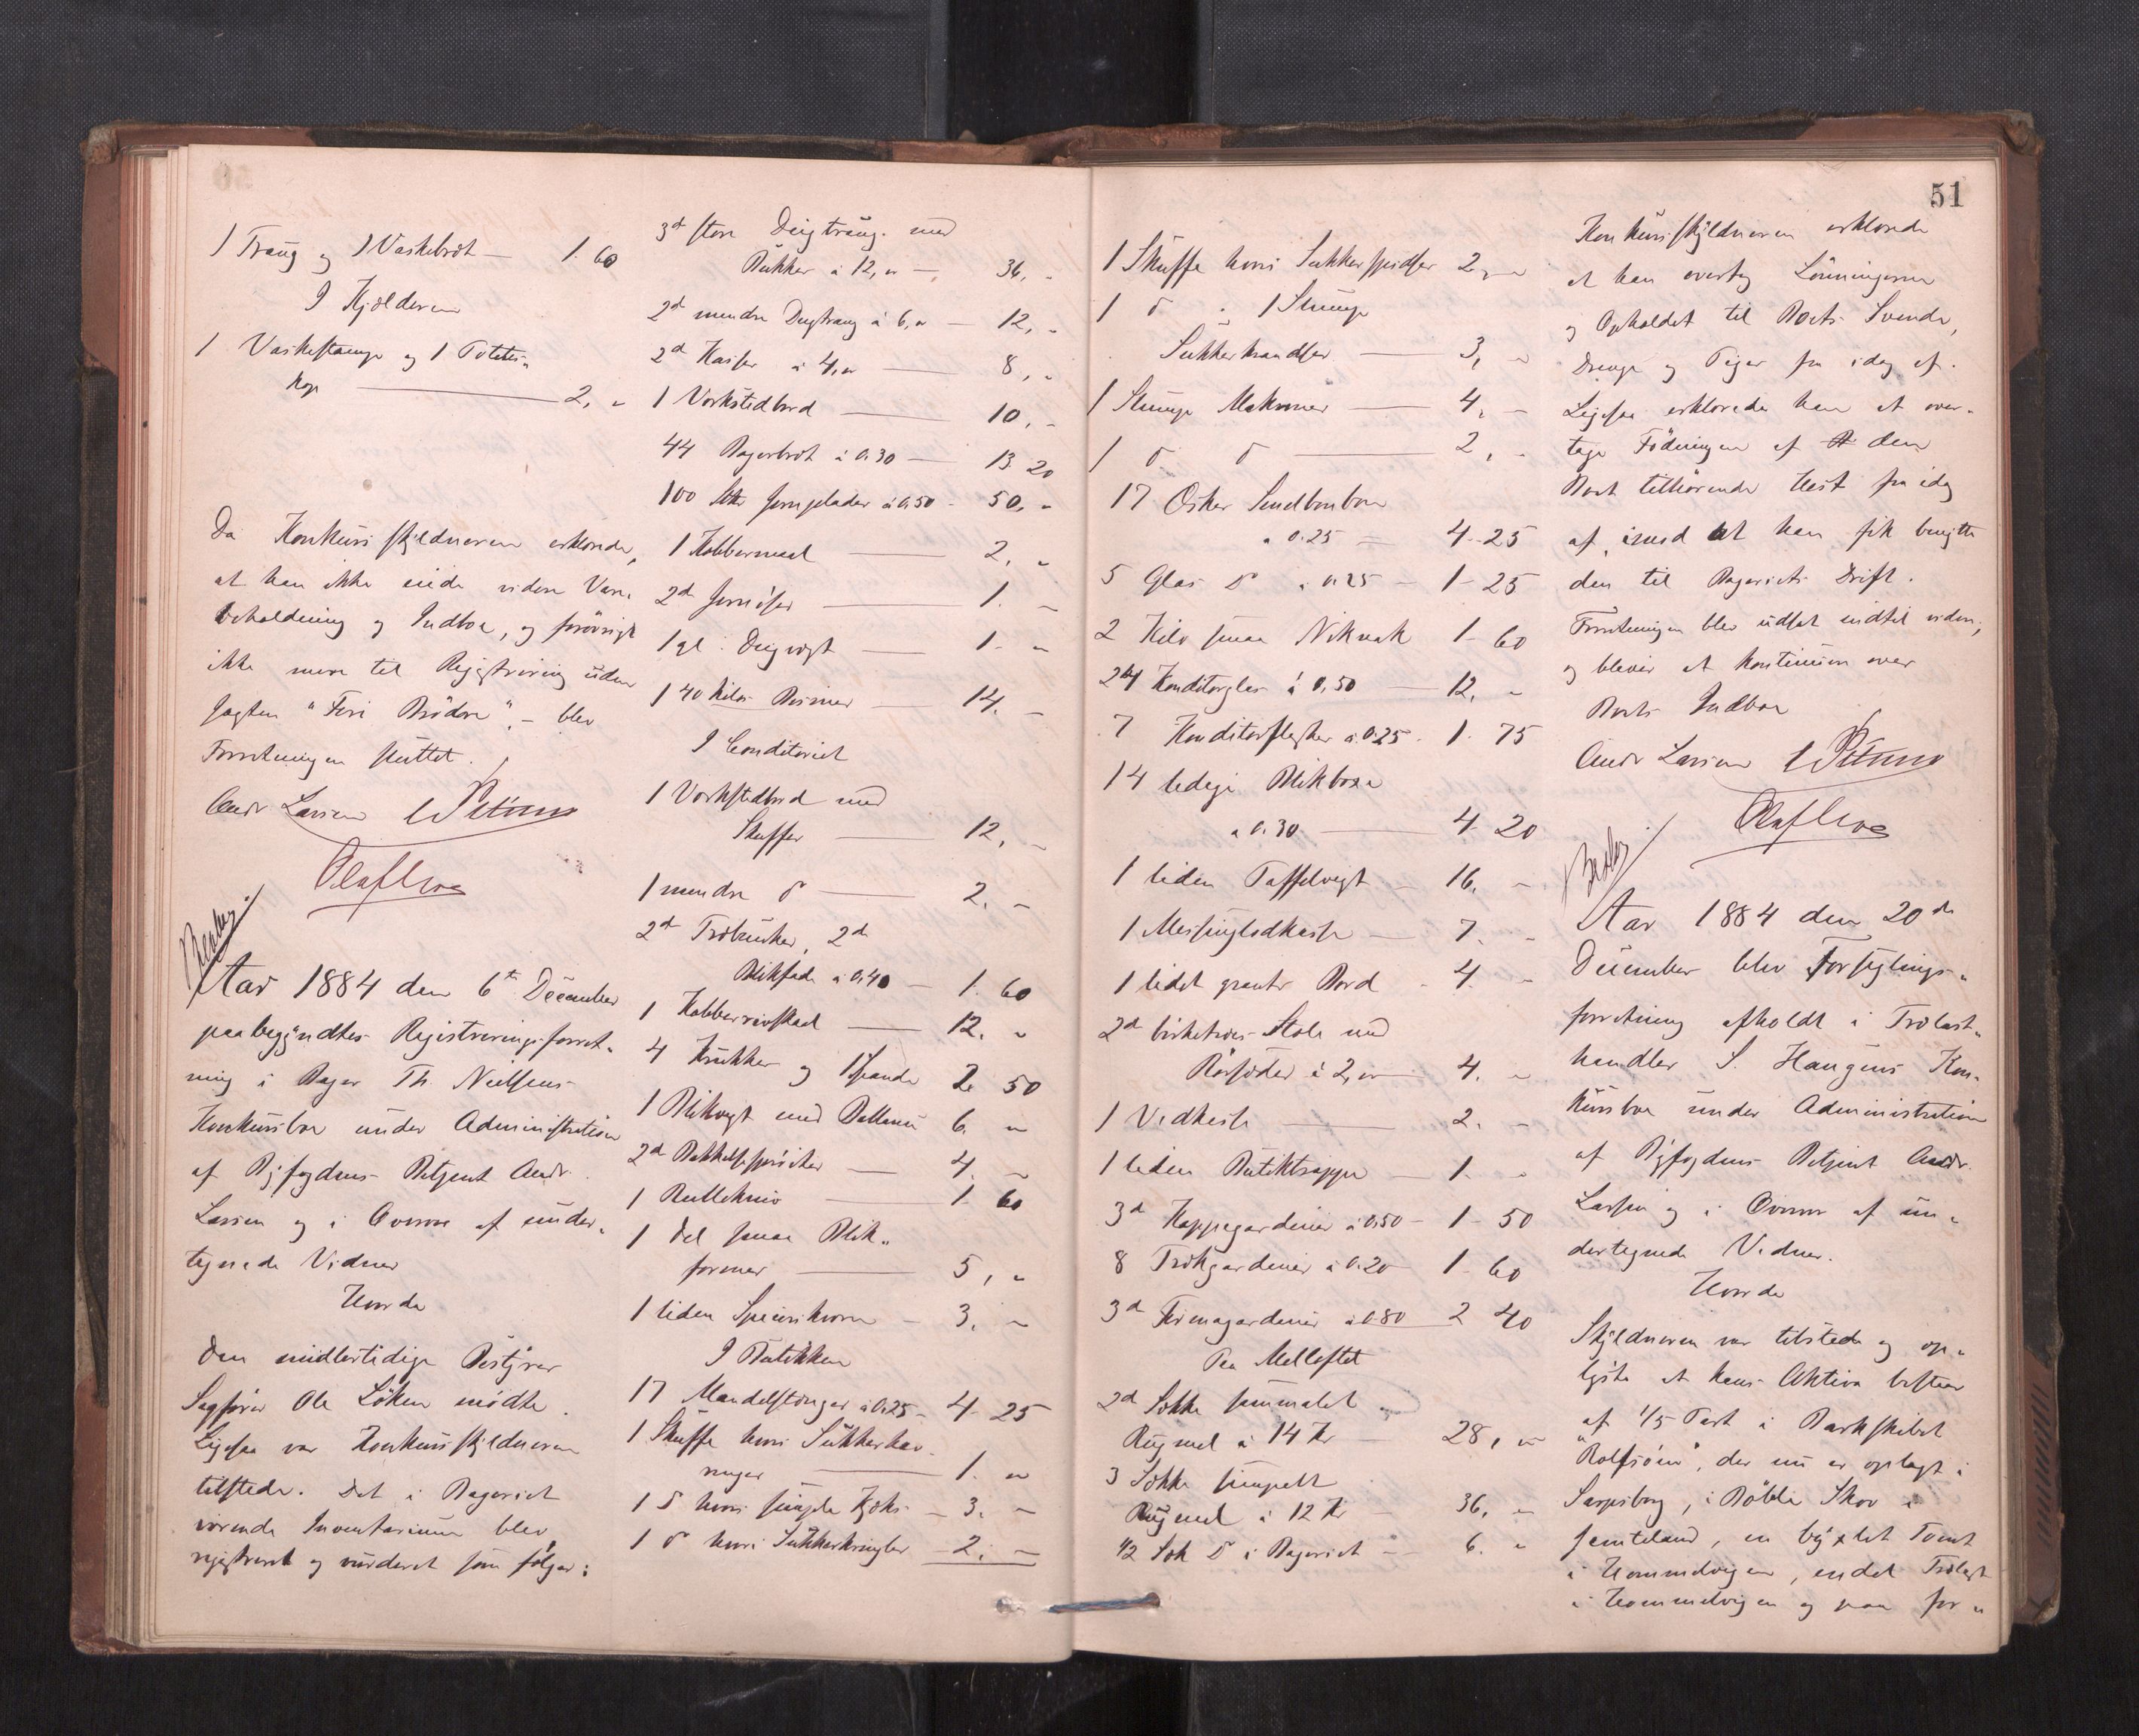 1 Traug og 1 Vaskebræt — 1. 60
I Kjælderen
1 Vaskestampe og 1 Potetes„
kop — 2, „
Da Konkursskyldneren erklærede,
at han ikke eiede videre Vare„
beholdning og Indboe, og forøvrigt
ikke mere til Registrering uden
Jagten "Fire Brødre", — blev
Forretningen sluttet.
Andr Larsen
Aar 1884 den 6te December
paabegyndtes Registreringsforret„
ning i Bager Th. Nielsens
Konkursboe under Administration
af Byfogdens Betjent Andr.
Larsen og i Overvær af under„
tegnede Vidner
Hvorda
Den midlertidige Bestyrer
Sagfører Ole Löken mødte.
Ligesaa var Konkursskyldneren
tilstede. Det i Bageriet
værende Inventarium blev
registreret og vurderet som følger:
3d store Deigtraug med
Bukker à 12, „ — 36, „
2d mindre Deigtraug à 6, „ — 12, „
2d Kasser à 4, „ — 8, „
1 Værkstedbord — 10, „
44 Bagerbræt à 0.30 — 13. 20
100 Jernplader à 0.50 - 50, „
1 Kobbermaal — 2, „
2d — 1. „
1 gl. Deigvægt — 1. „
1 40 Kilos Bismer — 14. „
I Conditoriet
1 Værkstedbord med
Skuffer — 12, „
1 mindre do — 2. „
2d 2d
Blikfade à 0.40 — 1. 60
1 — 12. „
4 Krukker og 1 Spand 2. 50
1 Blikvægt med 6. „
2d — 4. „
1 Rullekniv — 1. 60
1 Del smaa Blik„
former — 5, „
1 liden — 3. „
I Butikken
17 Mandelstænger à 0.25 - 4. 25
1 Skuffe hvori
— 1. „
1 do hvori simple Kjeks — 3. „
1 do hvori Sukkerkringler — 2. „
51
1 Skuffe hvori 2, „
1 do „ 1 Slump
— 3, „
1 Slump Makroner — 4, „
1 do do — 2, „
17 Æsker
à 0.25 — 4. 25
5 Glas do à 0.25 — 1. 25
2 Kilo smaa Niknak 1. 60
24 Konditorglas à 0,50 — 12. „
7 Konditorflasker à 0.25 . 1. 75
14 ledige Blikboxe
à 0.30. — 4. 20
1 liden Taffelvægt — 16. „
1 — 7. „
1 lidet Bord - 4. „
2d birketræs Stole med
Rørsæder à 2, „ — 4. „
1 Vedkasse — 2. „
1 liden Butiktrappe — 1. „
3d Kappegardiner à 0.50 — 1. 50
8 Trækgardiner à 0.20 — 1. 60
3d Firmagardiner à 0.80 2 40
Paa Melloftet
2d Sække sammalet
Rugmel à 14 Kr 28, „
3 Sække simpelt
Rugmel à 12 Kr — 36, „
1/2 Sæk do i Bageriet — 6. „
Konkursskyldneren erklærede
at han overtog Lønningerne
og Opholdet til Boets Svende,
Drenge og Piger fra idag af.
Ligesaa erklærede han at over„
tage Fødningen af den
Boet tilhørende Hest fra idag
af, imod at han fik benytte
den til Bageriets Drift.
Forretningen blev udsat indtil videre,
og blevir at kontinuere over
Boets Indboe
Andr Larsen
Aar 1884 den 20de
December blev Forseglings„
forretning afholdt i Trælast„
handler S. Haugens Kon„
kursboe under Administration
af Byfogdens Betjent Andr.
Larsen og i Overvær af un„
dertegnede Vidner.
Hvorda
Skyldneren var tilstede og op„
lyste at hans Aktiva bestaar
af 1/5 Part i Barkskibet
"Rolfsöen", der nu er oplagt i
Sarpsborg, i Skov i
Jemteland, en bygslet Tomt
i Hommelvigen, endel Trælast
i Hommelvigen og paa for„